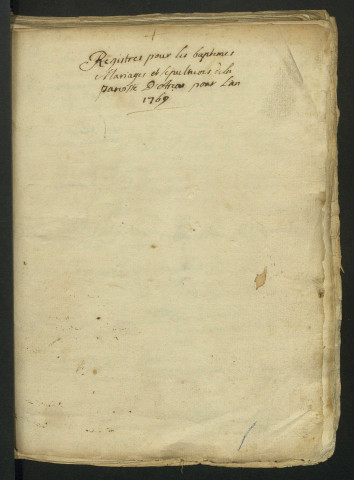 Registres pour les baptemes
Mariages et sepultures de la
paroisse pour Lan
1769